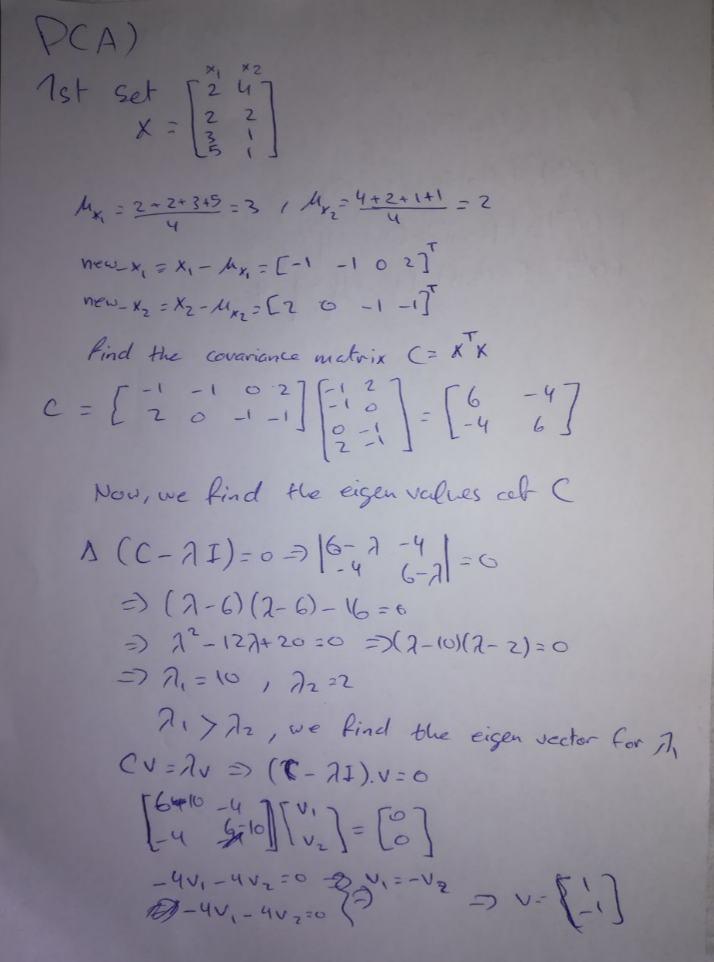 PCA)
x1 x2
1st set [2 4
X = 2 2
3 1
5 1]
μx1 = 2+2+3+5/4 = 3 , μx2 = 4+2+1+1/4 = 2
new_x1 = x1 - μx1 = [-1 -1 0 2]^T
new_x2 = x2 - μx2 = [2 0 -1 -1]^T
find the covariance matrix C = X^T X
C = [-1 -1 0 2; 2 0 -1 -1] [-1 2; -1 0; 0 -1; 2 -1] = [6 -4; -4 6]
Now, we find the eigen values of C
Δ (C - λI) = 0 => |6-λ -4; -4 6-λ| = 0
=> (λ-6)(λ-6) - 16 = 0
=> λ² - 12λ + 20 = 0 => (λ-10)(λ-2) = 0
=> λ1 = 10 , λ2 = 2
λ1 > λ2 , we find the eigen vector for λ1
Cv = λv => (C - λI).v = 0
[6-10 -4; -4 6-10] [v1; v2] = [0; 0]
-4v1 - 4v2 = 0 => v1 = -v2
-4v1 - 4v2 = 0 => v = [1; -1]